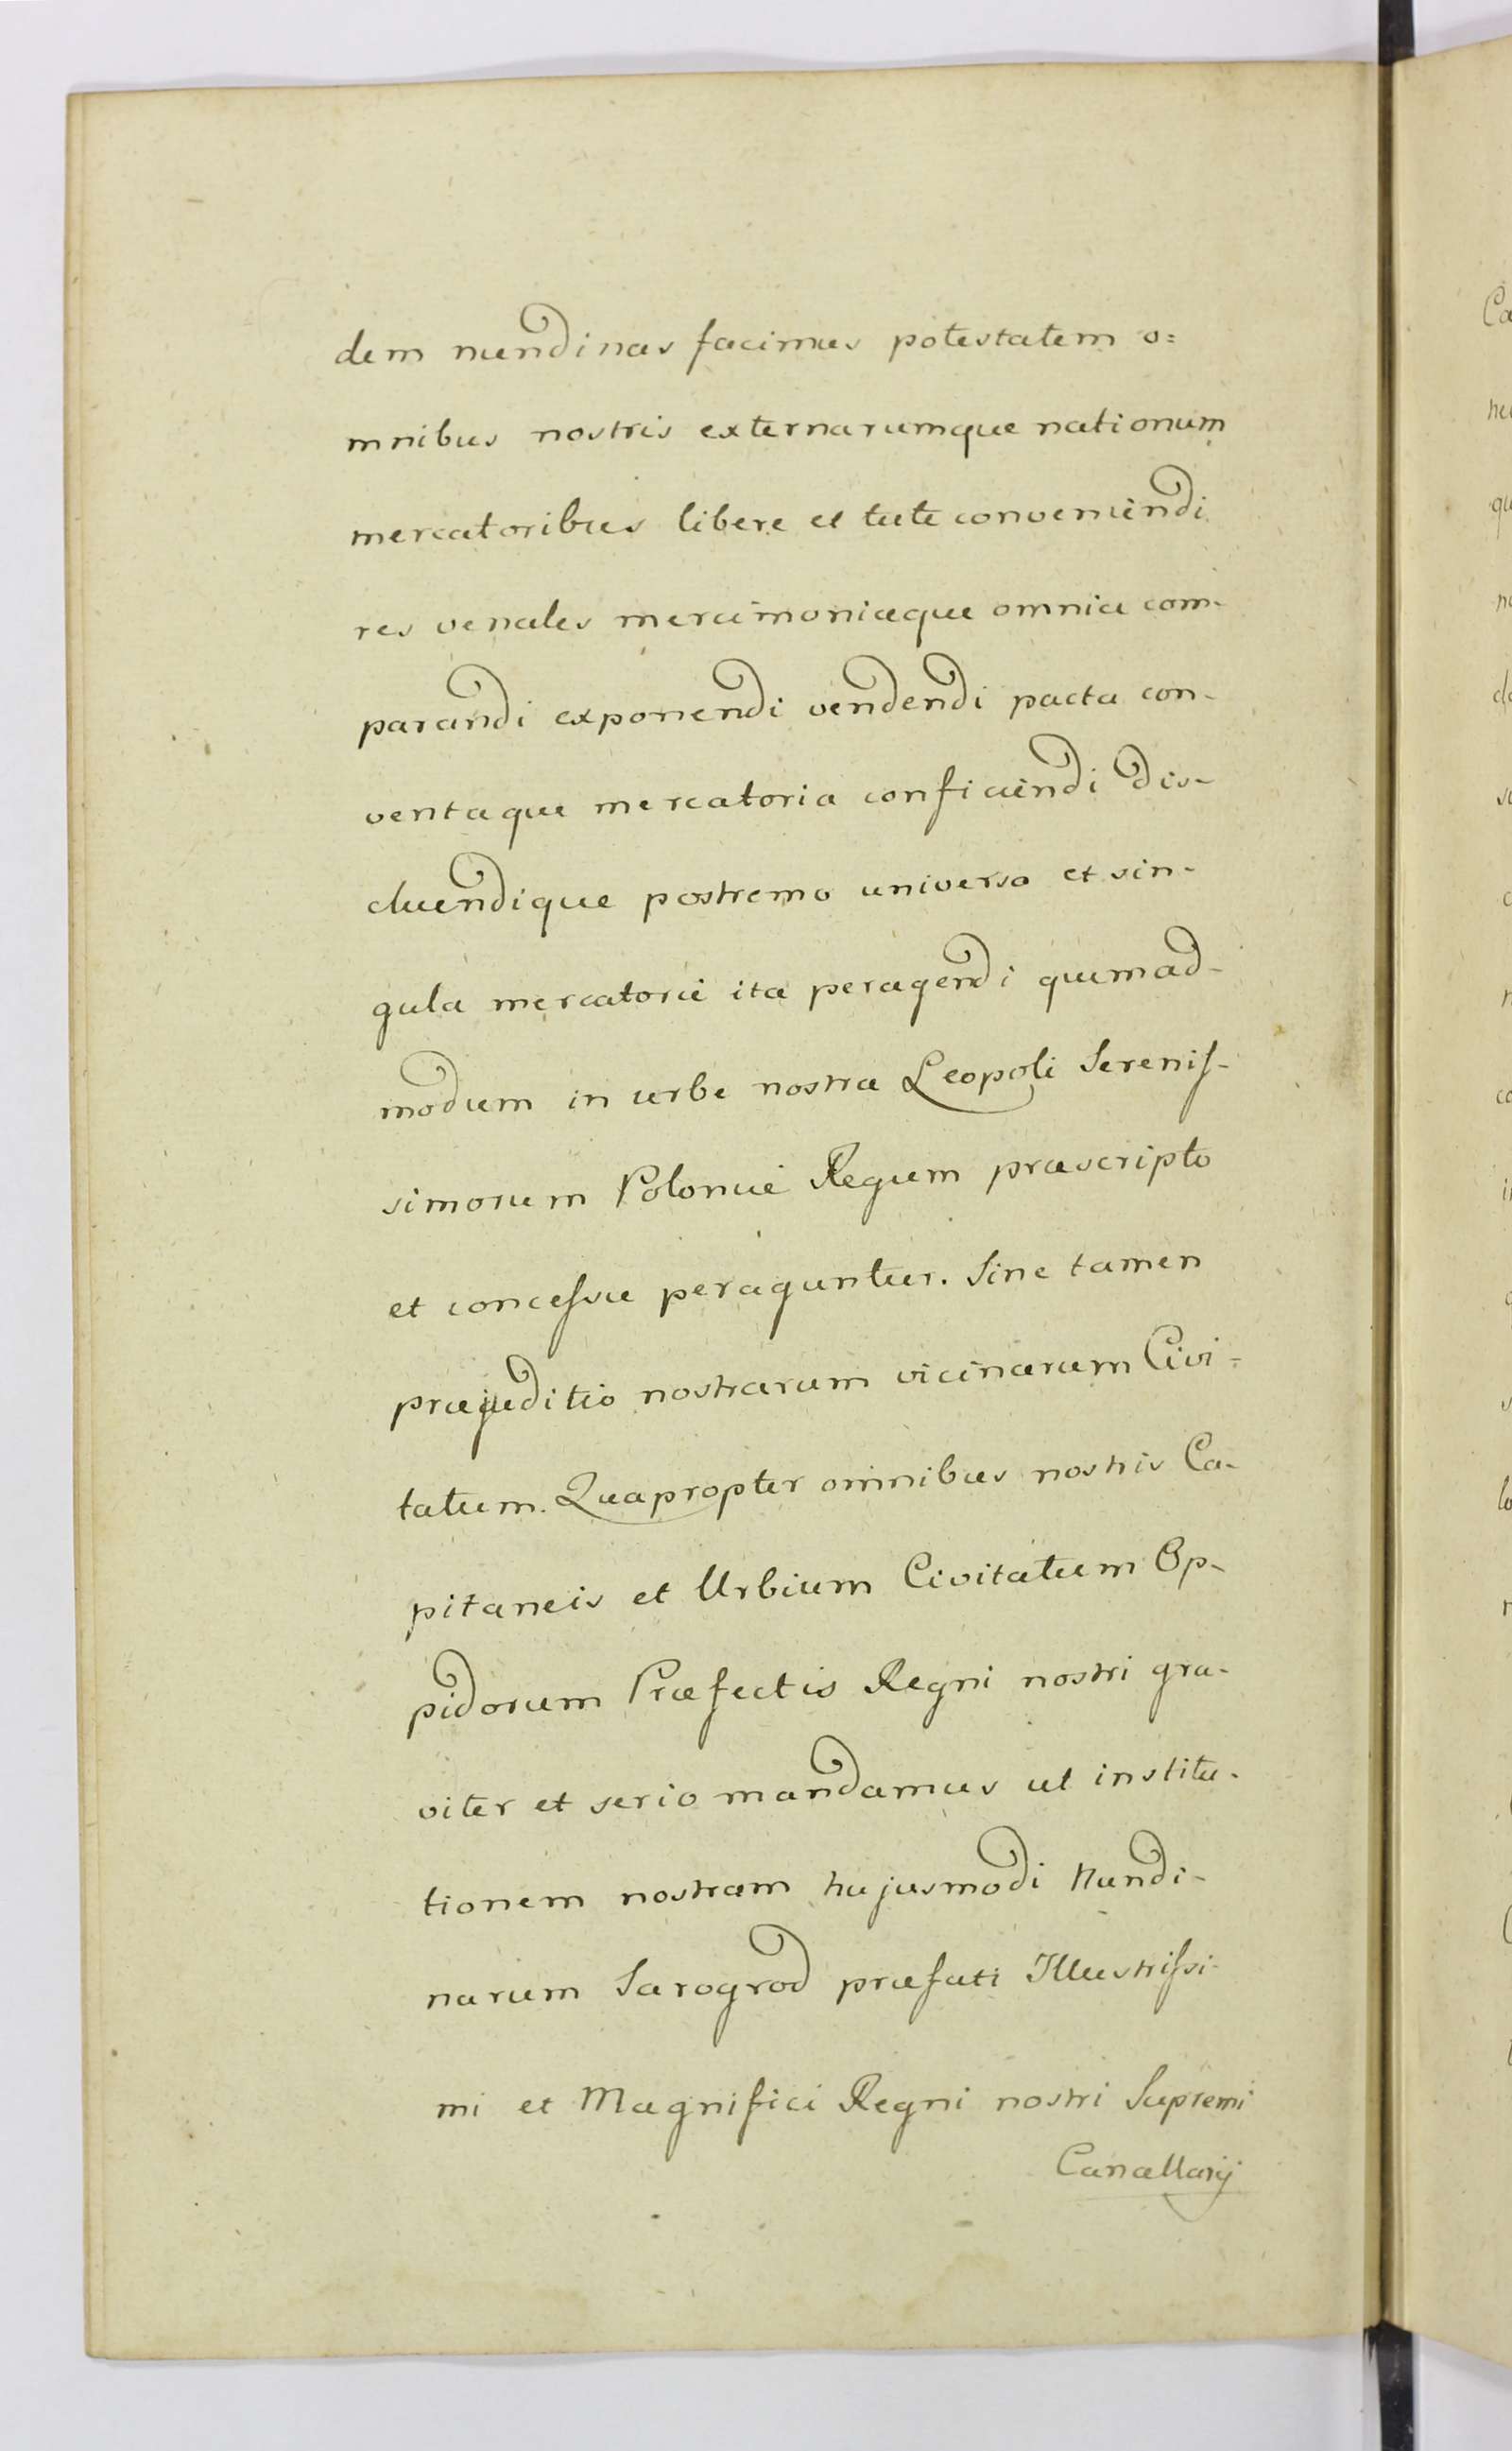 dem nundinas facimus potestatem o=
mnibus nostris externarumque nationum
mercatoribus libere et tute conveniendi
res venales mercimoniaque omnia com-
parandi exponendi vendendi pacta con-
ventaque mercatoria conficiendi dis-
cluendique postremo universa et sin-
gula mercatorie ita peragendi quemad-
modum in urbe nostra Leopoli Sereniſ-
simorum Poloniæ Regum præscripto
et conceſsu peraguntur. Sine tamen
præjuditio nostrarum vicinarum Civi=
tatum. Quapropter omnibus nostris Ca-
pitaneis et Urbium Civitatum Op-
pidorum Præfectis Regni nostri gra-
viter et serio mandamus ut institu-
tionem nostram hujusmodi Nundi-
narum Sarogrod præfati Illustriſsi-
mi et Magnifici Regni nostri Supremi
Cancellarij